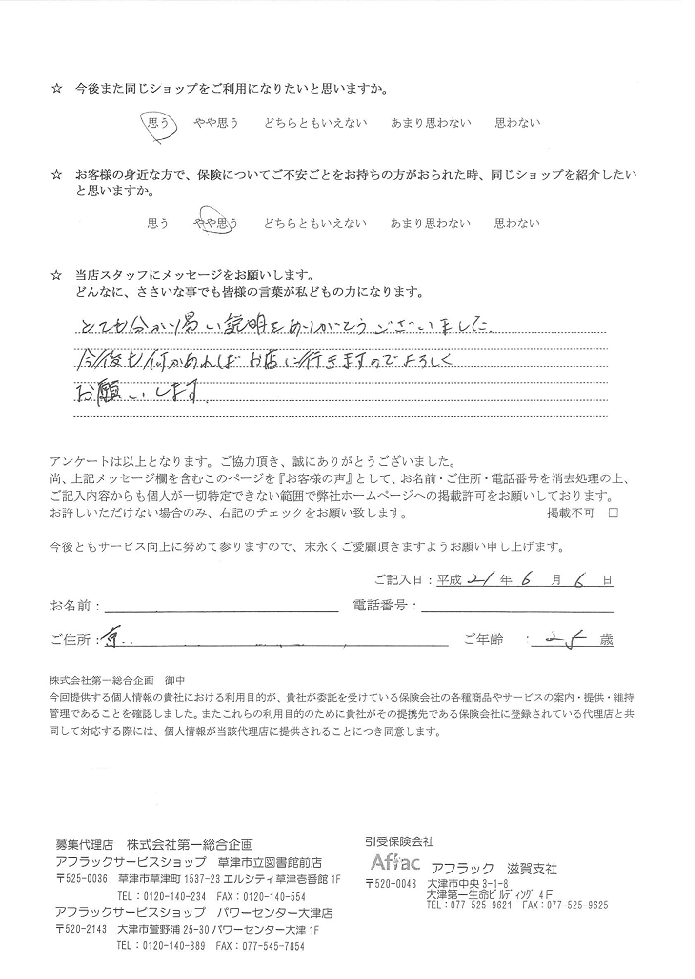 ☆ 今後また同じショップをご利用になりたいと思いますか。
思う やや思う どちらともいえない あまり思わない 思わない
☆ お客様の身近な方で、保険についてご不安ごとをお持ちの方がおられた時、同じショップを紹介したい
と思いますか。
思う やや思う どちらともいえない あまり思わない 思わない
☆ 当店スタッフにメッセージをお願いします。
どんなに、ささいな事でも皆様の言葉が私どもの力になります。
とても分かり易い説明をありがとうございました。
今後も何かあればお店に行きますのでよろしく
お願いします。
アンケートは以上となります。ご協力頂き、誠にありがとうございました。
尚、上記メッセージ欄を含むこのページを『お客様の声』として、お名前・ご住所・電話番号を消去処理の上、
ご記入内容からも個人が一切特定できない範囲で弊社ホームページへの掲載許可をお願いしております。
お許しいただけない場合のみ、右記のチェックをお願い致します。 掲載不可 □
今後ともサービス向上に努めて参りますので、末永くご愛顧頂きますようお願い申し上げます。
ご記入日：平成 21 年 6 月 6 日
お名前： 電話番号：
ご住所： ご年齢 ： 25 歳
株式会社第一総合企画 御中
今回提供する個人情報の貴社における利用目的が、貴社が委託を受けている保険会社の各種商品やサービスの案内・提供・維持
管理であることを確認しました。またこれらの利用目的のために貴社がその提携先である保険会社に登録されている代理店と共
同して対応する際には、個人情報が当該代理店に提供されることにつき同意します。
募集代理店 株式会社第一総合企画
アフラックサービスショップ 草津市立図書館前店
〒525-0036 草津市草津町1537-23 エルシティ草津壱番館1F
TEL：0120-140-234 FAX：0120-140-554
アフラックサービスショップ パワーセンター大津店
〒520-2143 大津市萱野浦25-30 パワーセンター大津1F
TEL：0120-140-389 FAX：077-545-7854
引受保険会社
Aflac アフラック 滋賀支社
〒520-0043 大津市中央3-1-8
大津第一生命ビルディング4F
TEL:077-525-9621 FAX:077-525-9525